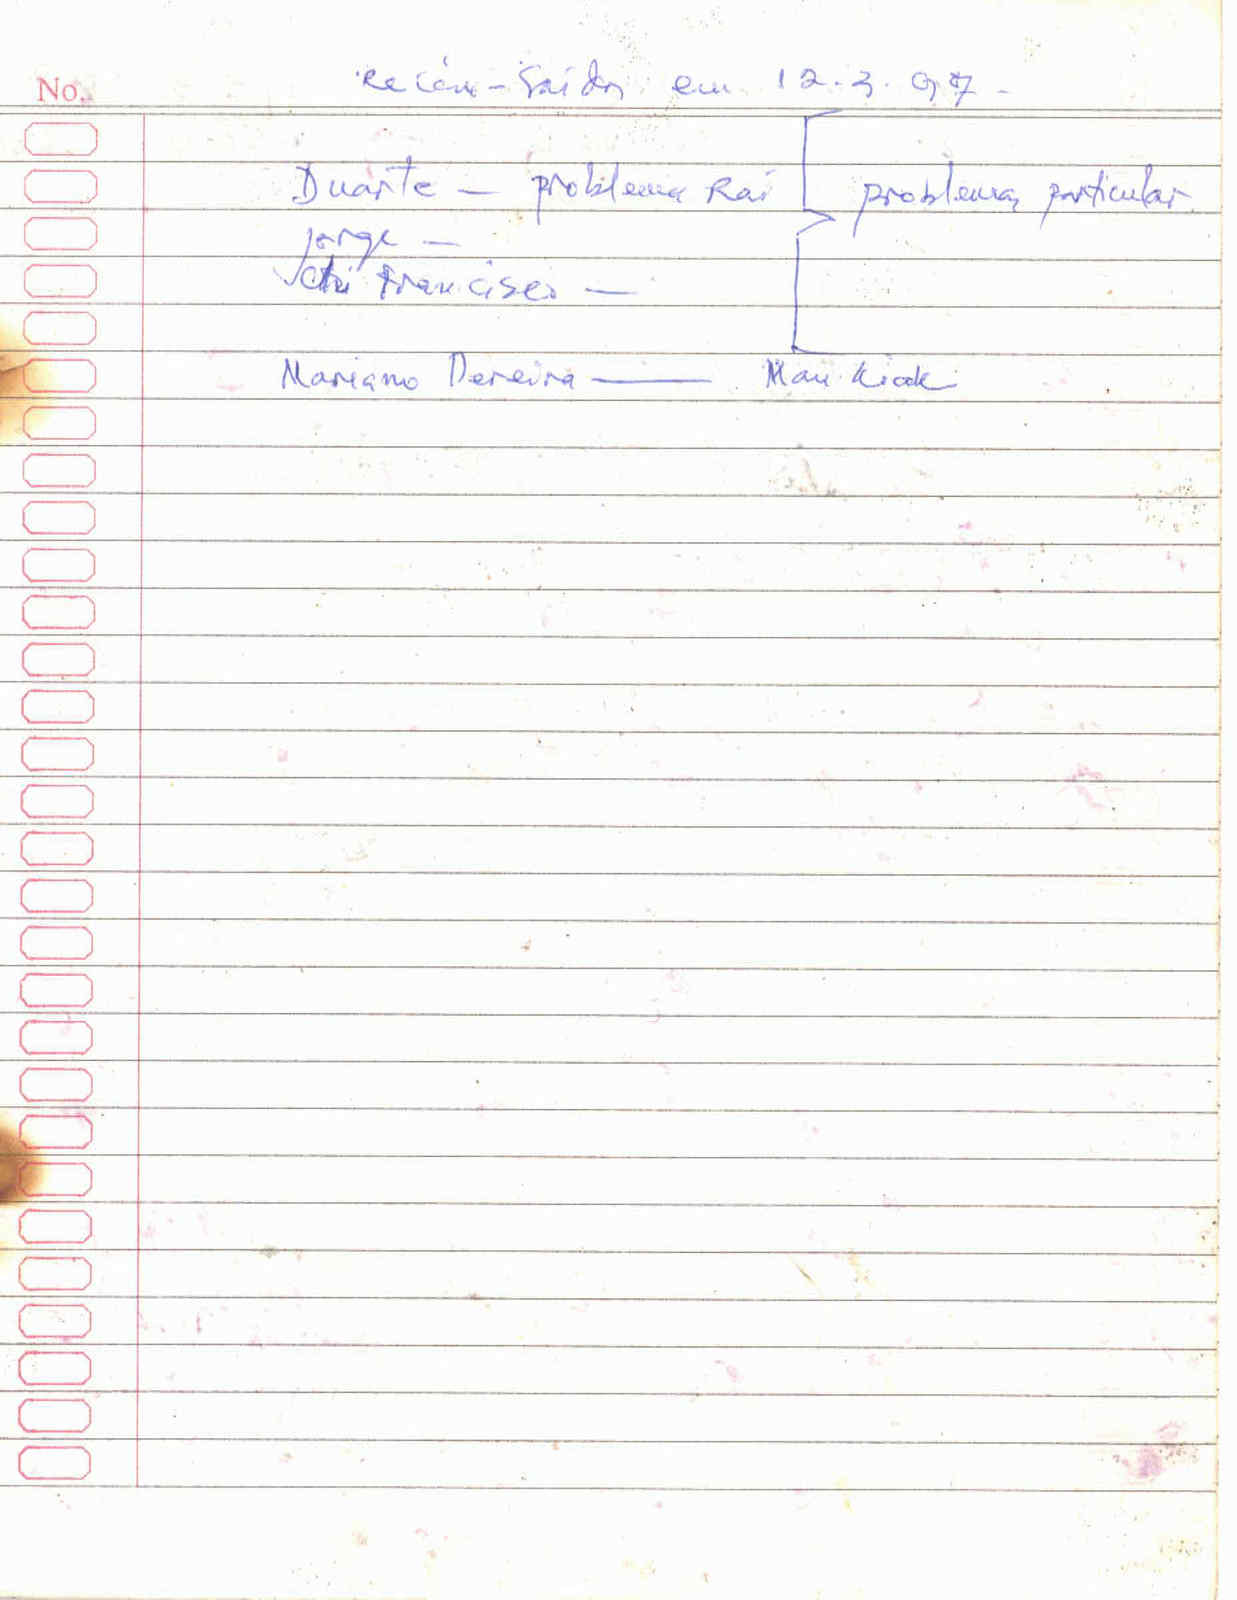 No.
Recém-Saidos em 12.3.97-
Duarte - problema Rai problemas particular
Jorge -
Francisco -
Mariano Pereira - Mau Kiak